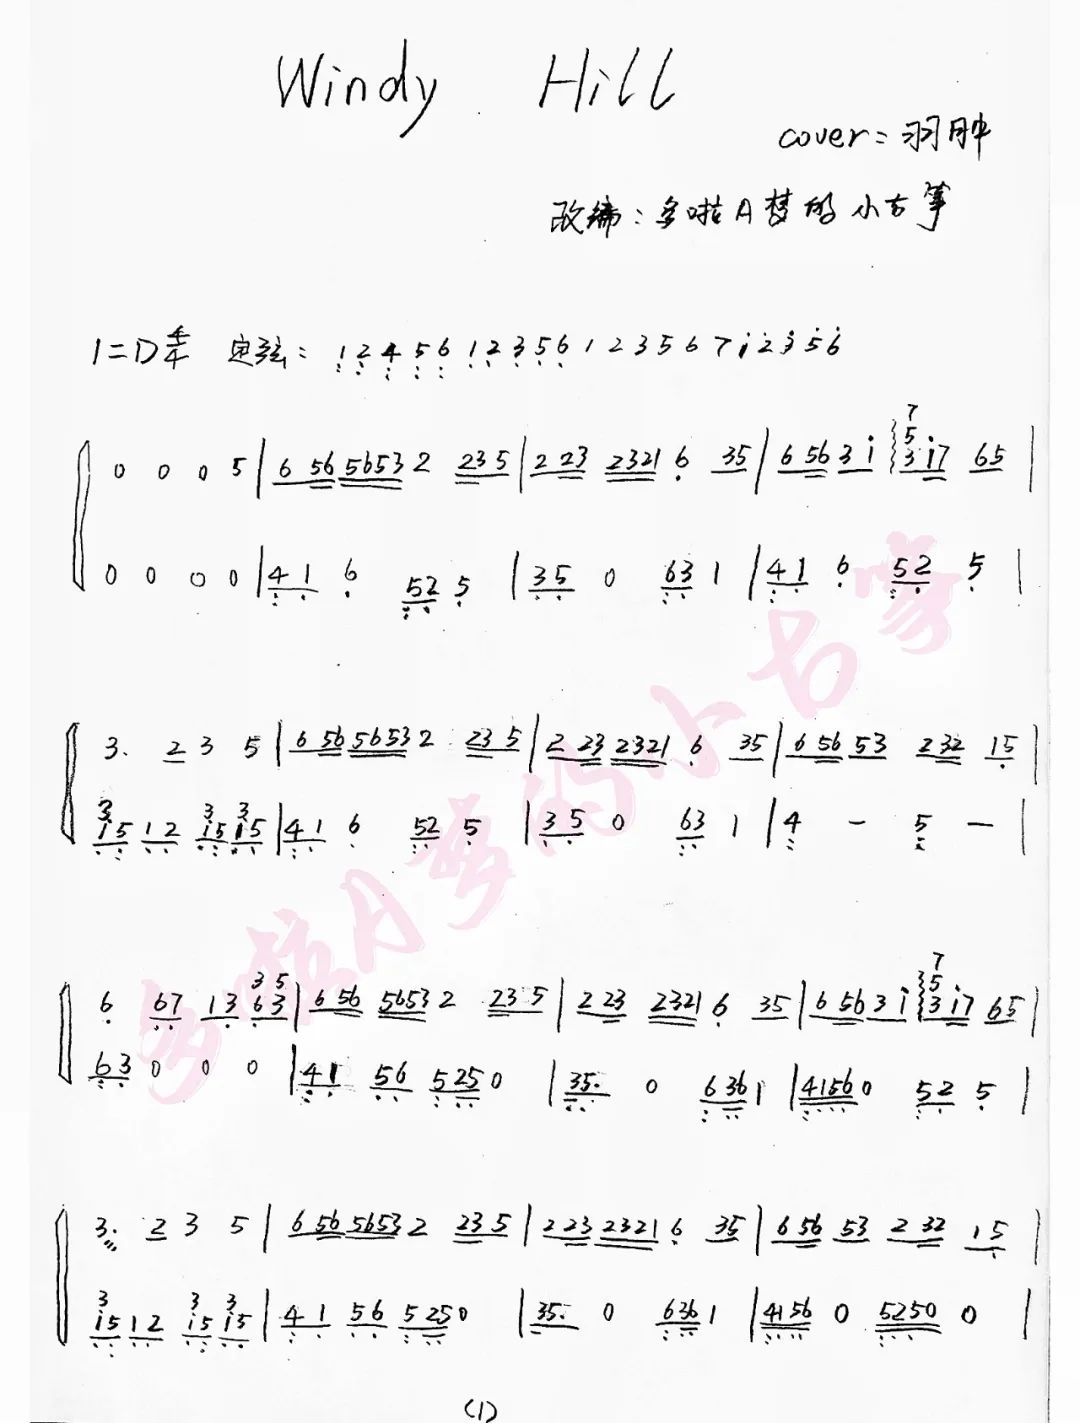 Windy Hill
cover = 羽肿
改编：多啦A梦的小古筝
1=D 4/4 定弦： 1 2 4 5 6 1 2 3 5 6 1 2 3 5 6 7 1 2 3 5 6
7
5
0 0 0 5 | 6 56 5653 2 23 5 | 2 23 2321 6 35 | 6 56 3 1 3 17 65 |
0 0 0 0 | 4 1 6 52 5 | 35 0 63 1 | 41 6 52 5 |
3. 2 3 5 | 6 56 5653 2 23 5 | 2 23 2321 6 35 | 6 56 53 232 15 |
3 3 3
15 12 15 15 | 41 6 52 5 | 35 0 63 1 | 4 - 5 - |
7
3 5 5
6 67 13 63 | 6 56 5653 2 23 5 | 2 23 2321 6 35 | 6 56 3 1 3 17 65 |
63 0 0 0 | 41 56 525 0 | 35. 0 636 1 | 4156 0 52 5 |
3. 2 3 5 | 6 56 5653 2 23 5 | 2 23 2321 6 35 | 6 56 53 2 32 15 |
3 3 3
15 12 15 15 | 41 56 525 0 | 35. 0 636 1 | 4156 0 5250 0 |
(1)
多啦A梦的小古筝